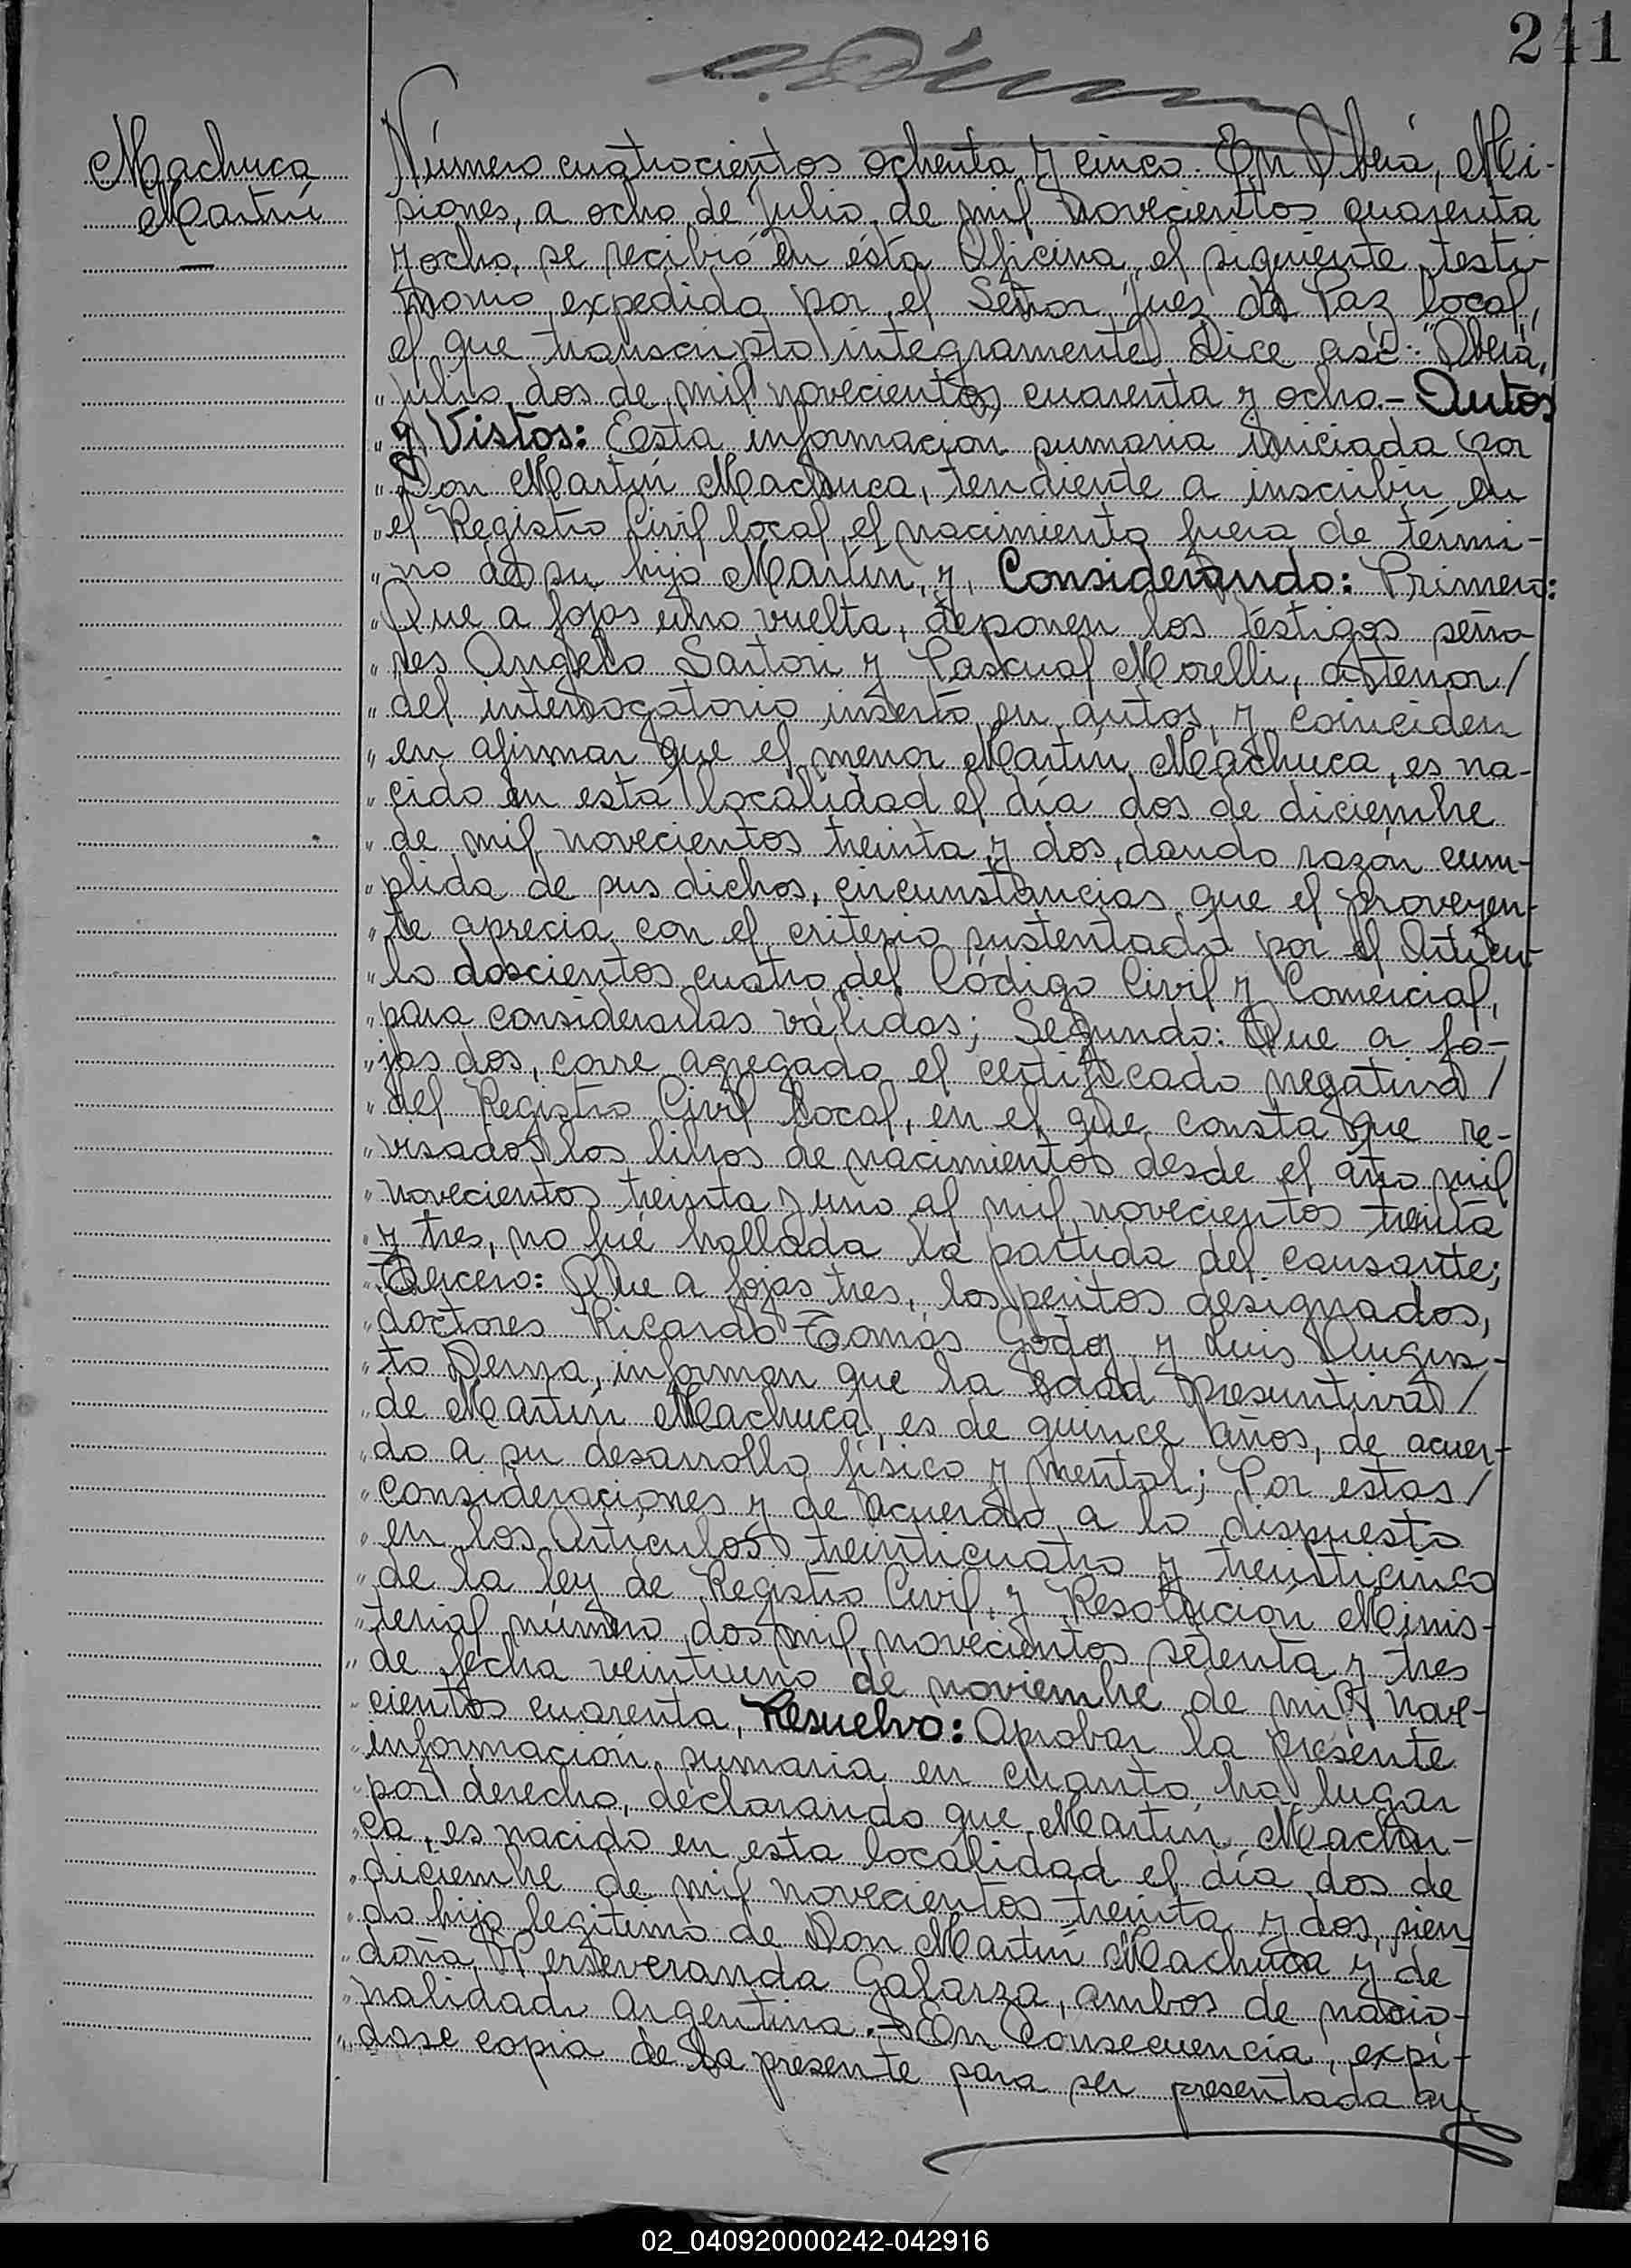 241
Machuca
Martín
Número cuatrocientos ochenta y cinco. En Oberá, Mi-
siones, a ocho de Julio de mil novecientos cuarenta
y ocho, se recibió en ésta Oficina, el siguiente testi-
monio expedido por el Señor Juez de Paz local,
el que transcripto integramente dice así: "Oberá,
" julio dos de mil novecientos cuarenta y ocho.- Autos
" y Vistos: Esta informacion sumaria iniciada por
" Don Martín Machuca, tendiente a inscribir en
" el Registro Civil local el nacimiento fuera de térmi-
" no de su hijo Martín, y, Considerando: Primero:
" Que a fojas uno vuelta, deponen los testigos seño-
" res Angelo Sartori y Pascual Morelli, a tenor /
" del interrogatorio inserto en autos, y coinciden
" en afirmar que el menor Martín Machuca, es na-
" cido en esta localidad el día dos de diciembre
" de mil novecientos treinta y dos, dando razón cum-
" plida de sus dichos, circunstancias que el proveyen-
" te aprecia con el criterio sustentado por el Artícu-
" lo doscientos cuatro del Código Civil y Comercial,
" para considerarlas válidas; Segundo: Que a fo-
" jas dos, corre agregado el certificado negativo /
" del Registro Civil local, en el que consta que re-
" visados los libros de nacimientos desde el año mil
" novecientos treinta y uno al mil novecientos treinta
" y tres, no fué hallada la partida del causante;
" Tercero: Que a fojas tres, los peritos designados,
" doctores Ricardo Tomás Godoy y Luis Augus-
" to Derna, informan que la edad presuntiva /
" de Martín Machuca, es de quince años, de acuer-
" do a su desarrollo físico y mental; Por estas /
" consideraciones y de acuerdo a lo dispuesto
" en los Artículos treinticuatro y treinticinco
" de la ley de Registro Civil y Resolución Minis-
" terial número dos mil novecientos setenta y tres
" de fecha veintiuno de noviembre de mil nove-
" cientos cuarenta, Resuelvo: Aprobar la presente
" información sumaria en cuanto ha lugar
" por derecho, declarando que Martín Machu-
" ca, es nacido en esta localidad el día dos de
" diciembre de mil novecientos treinta y dos, sien
" do hijo legítimo de Don Martín Machuca y de
" doña Perseveranda Galarza, ambos de nacio-
" nalidad Argentina.- En consecuencia, expí-
" dase copia de la presente para ser presentada an
02_040920000242-042916